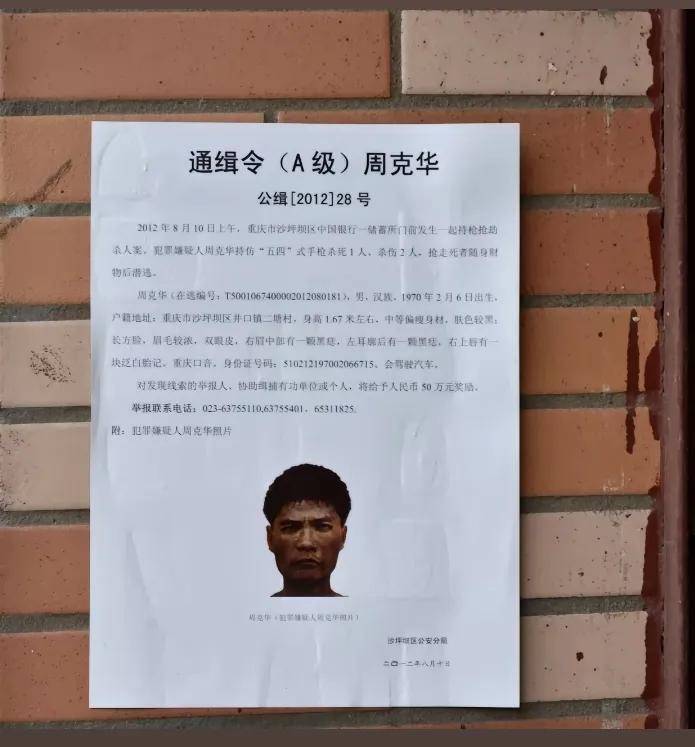 通缉令（A 级）周克华
公缉[2012]28 号
2012 年 8 月 10 日上午，重庆市沙坪坝区中国银行一储蓄所门前发生一起持枪抢劫
杀人案，犯罪嫌疑人周克华持仿“五四”式手枪杀死 1 人、杀伤 2 人，抢走死者随身财
物后潜逃。
周克华（在逃编号：T5001067400002012080181），男，汉族，1970 年 2 月 6 日出生，
户籍地址：重庆市沙坪坝区井口镇二塘村，身高 1.67 米左右，中等偏瘦身材，肤色较黑；
长方脸，眉毛较浓，双眼皮，右眉中部有一颗黑痣，左耳廓后有一颗黑痣，右上唇有一
块泛白胎记。重庆口音，身份证号码：510212197002066715、会驾驶汽车。
对发现线索的举报人、协助缉捕有功单位或个人，将给予人民币 50 万元奖励。
举报联系电话：023-63755110,63755401，65311825.
附：犯罪嫌疑人周克华照片
周克华（犯罪嫌疑人周克华照片）
沙坪坝区公安分局
二〇一二年八月十日